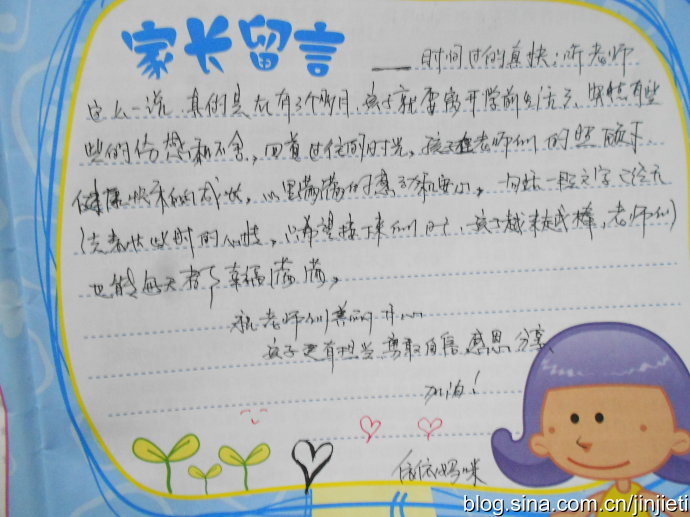 家长留言
时间过的真快,听老师
这么一说,真的是只有3个多月,孩子就要离开学前生活了,突然有些
些的伤感和不舍,回首过往的时光,孩子在老师们的照顾下,
健康快乐的成长,心里满满的感动和安心,句话一段文字已经无
法表达此时的心情,只希望接下来的日子,孩子越来越棒,老师们
也能每天都幸福满满。
祝老师们美丽开心
孩子更有担当 勇敢 自信 感恩 分享、
加油!
依依妈咪
blog.sina.com.cn/jinjieti